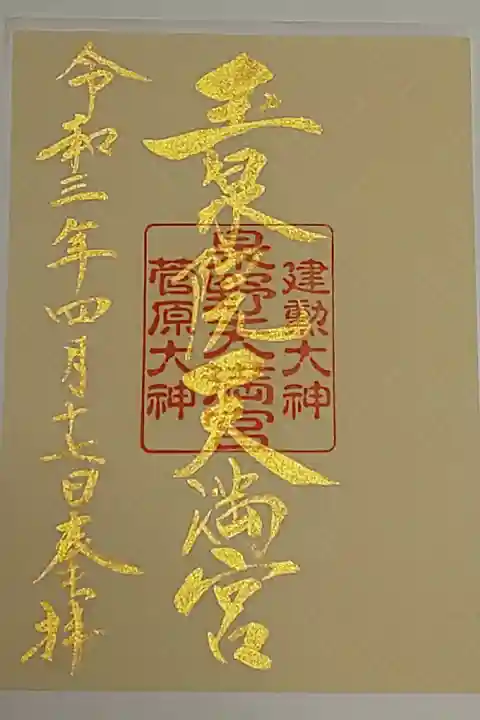 玉泉院天満宮
建勲大神
泉野天満宮
菅原大神
令和三年四月十七日
拝